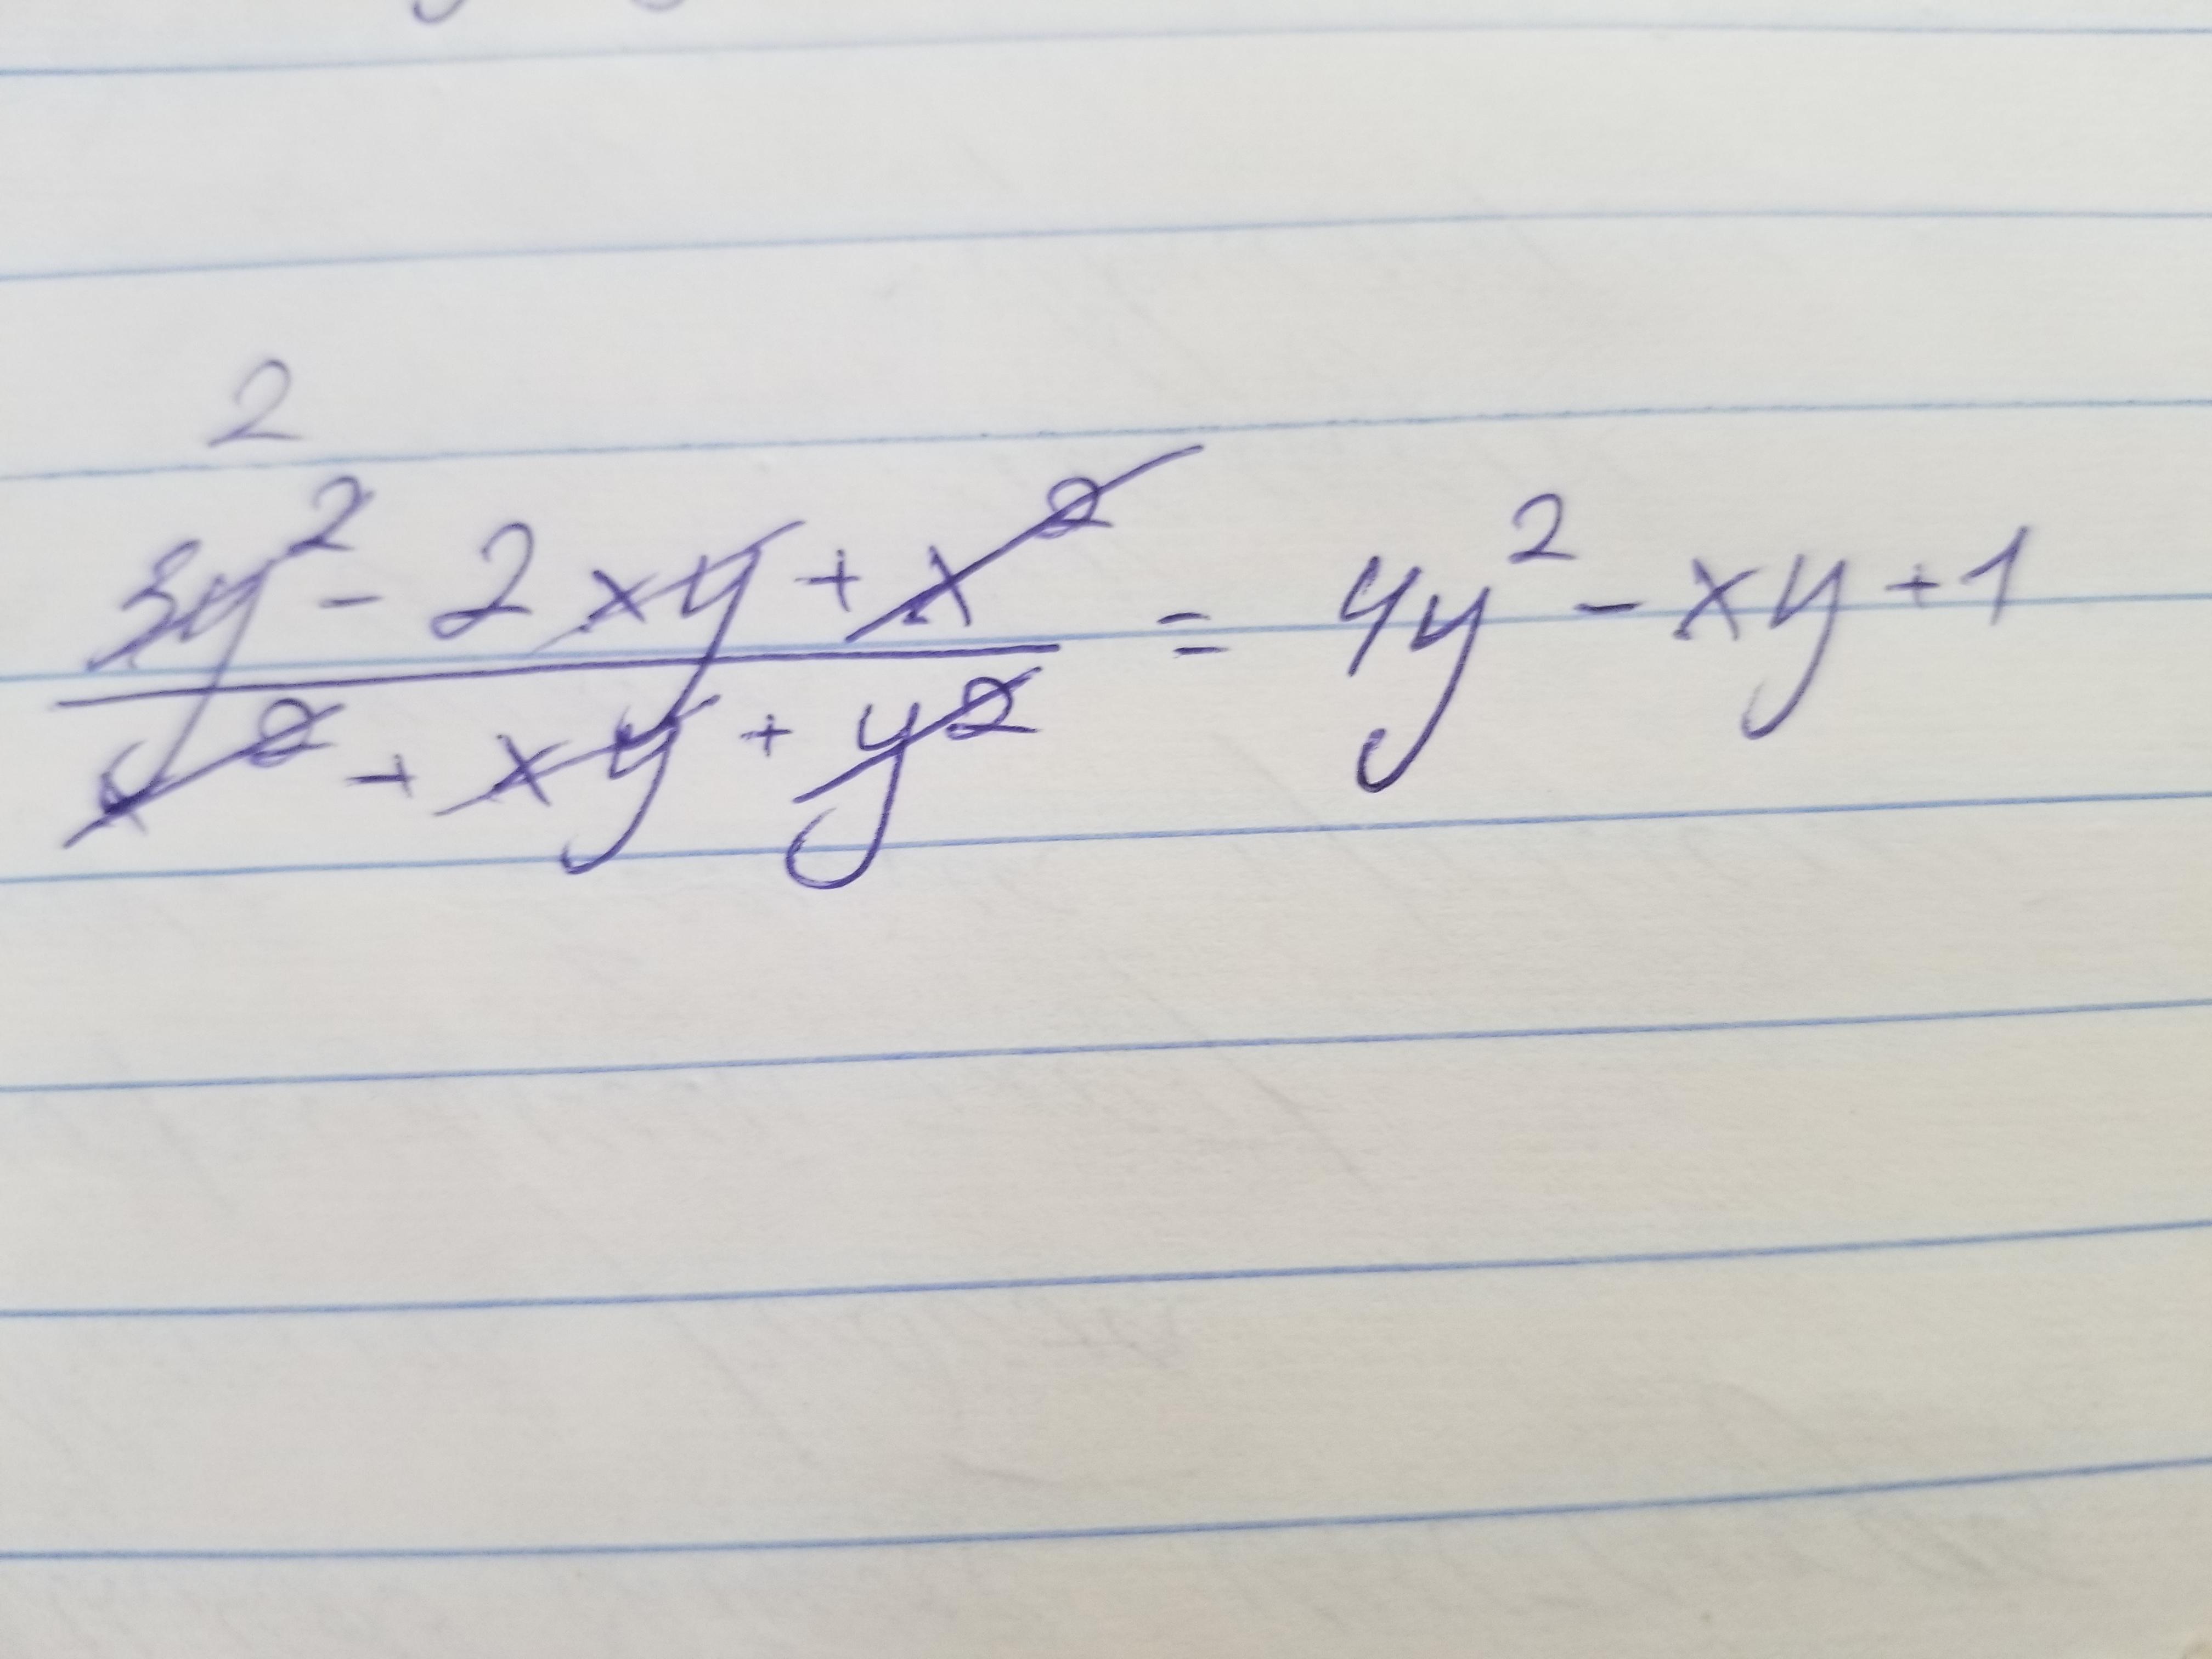 2
3y² - 2xy + x²
x² + xy + y² = 4y² - xy + 1